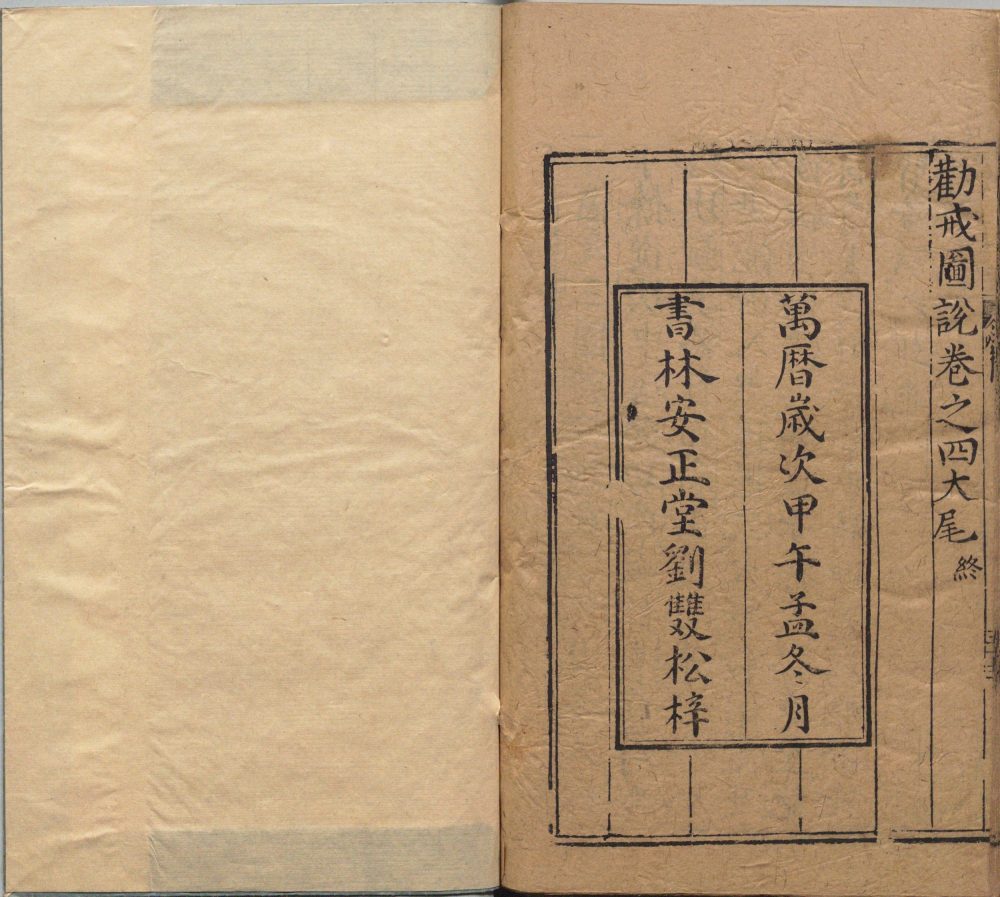 勸戒圖說卷之四大尾終
萬曆歲次甲午孟冬月
書林安正堂劉雙松梓